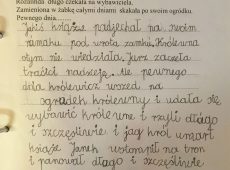 Rozalinda długo czekała na wybawiciela.
Zamieniona w żabkę całymi dniami skakała po swoim ogródku.
Pewnego dnia
jakiś książe podjechał na swoim
rumahu pod wrota zamku. Królewna
o tym nie wiedziała. Jusz zaczeła
tracić nadzieję. Ale pewnego
dnia królewicz wszed na
ogródek królewny i udała się
wybawić królewne i rzyli długo
i szczęśliwie i jag król umarł
książe Janek wstompił na tron
i panował długo i szczęśliwie.